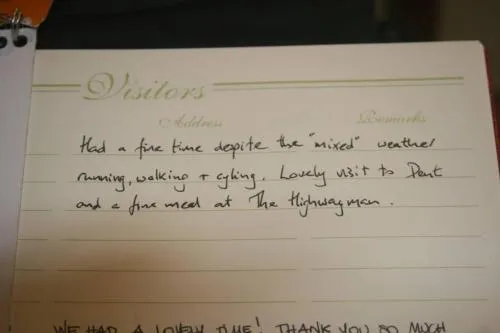 Visitors
Address Remarks
Had a fine time despite the "mixed" weather
running, walking + cycling. Lovely visit to Dent
and a fine meal at The Highwayman.
WE HAD A LOVELY TIME! THANK YOU SO MUCH